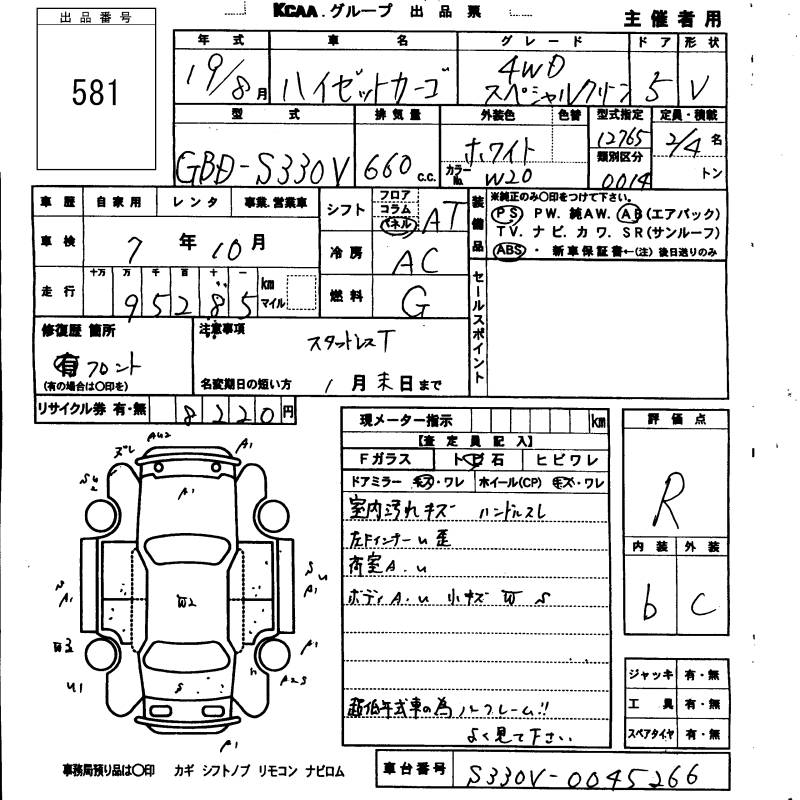 KCAA グループ 出品票
主催者用
出品番号
581
年式 車名 グレード ドア 形状
19/8月 ハイゼットカーゴ 4WD スペシャルクリーン 5 V
型式 排気量 外装色 色替 型式指定 定員・積載
GBD-S330V 660 c.c. ホワイト 12765 2/4 名
カラーNo. W20 類別区分 0014 トン
車歴 自家用 レンタ 事業.営業車
車検 7年10月
走行 十万 万 千 百 十 一
95285 km マイル
シフト フロア コラム パネル AT
冷房 AC
燃料 G
装備品 ※純正のみ〇印をつけて下さい。
PS PW. 純AW. AB(エアバック)
TV. ナビ. カワ. SR(サンルーフ)
ABS・新車保証書←(注)後日送りのみ
セールスポイント
修復歴 箇所
有 フロント
(有の場合は〇印を)
注意事項
スタットレスT
名変期日の短い方 1月末日まで
リサイクル券 有・無 8220円
現メーター指示 km
【査定員記入】
Fガラス トビ石 ヒビワレ
ドアミラー キズ・ワレ ホイール(CP) キズ・ワレ
室内汚れキズ ハンドルスレ
左Fインナーu歪
荷室A.u
ボディA.u 小キズ W S
超低年式車の為ノークレーム!!
よく見て下さい。
評価点
R
内装 外装
b C
ジャッキ 有・無
工具 有・無
スペアタイヤ 有・無
ズレ AU2 A1
SU2
A1
S A1
W2
S U A1
W3
A1
U1
S
A2S
A1
事務局預り品は〇印 カギ シフトノブ リモコン ナビロム
車台番号 S330V-0045266